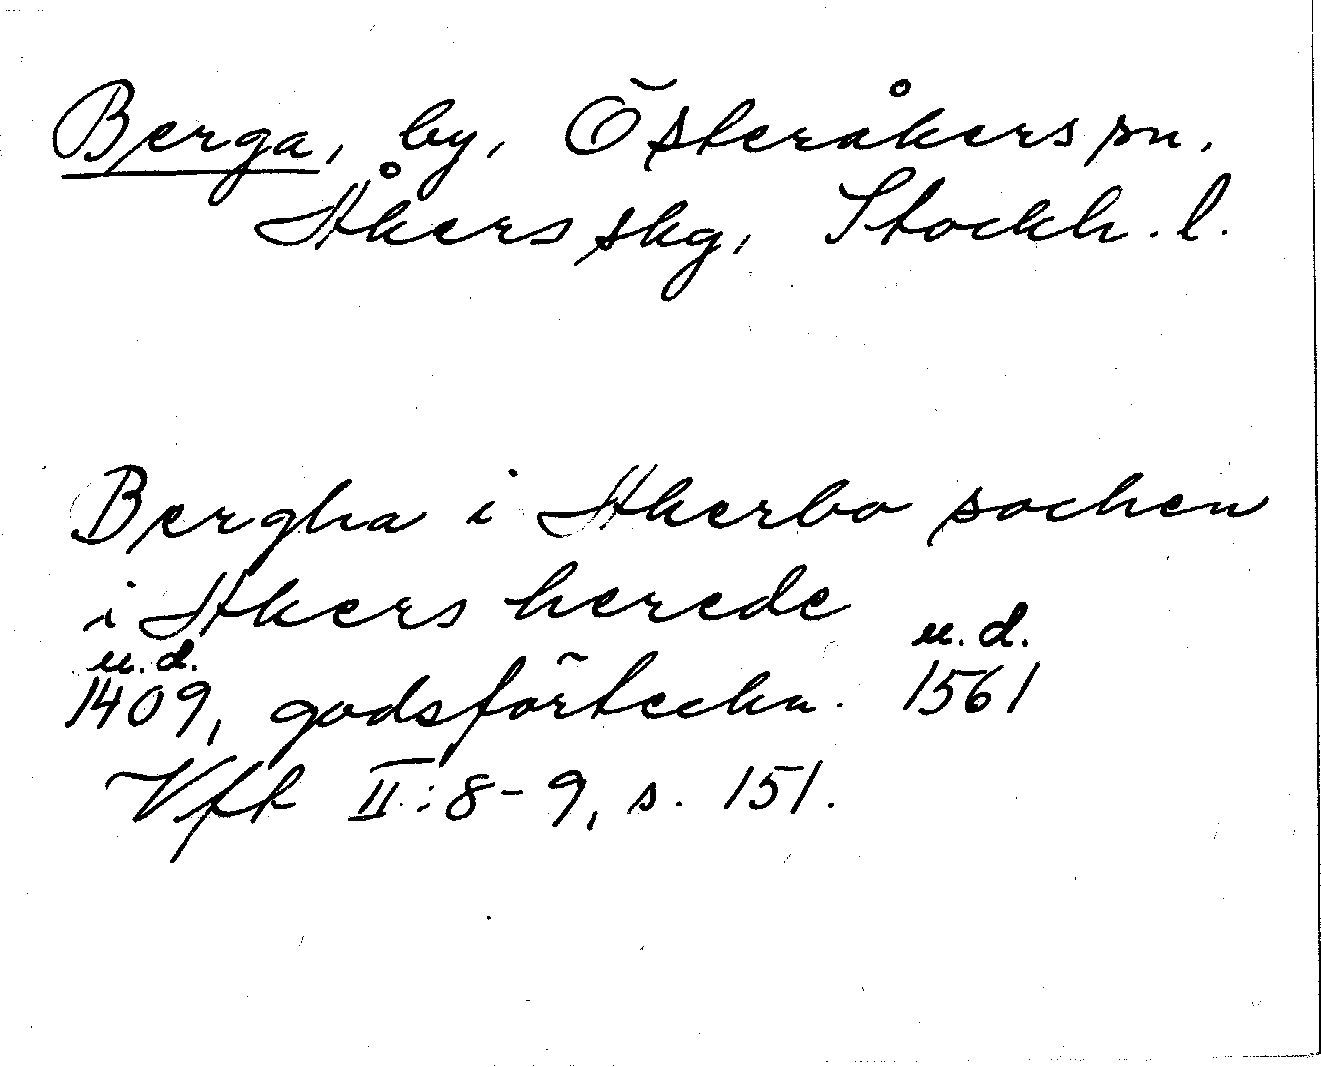 Berga, by, Österåkers sn.
Åkers skg, Stockh. l.
Bergha i Akerbo sochen
i Akers herede
u.d. u.d.
1409, godsförteckn. 1561
Vfk II:8-9, s. 151.